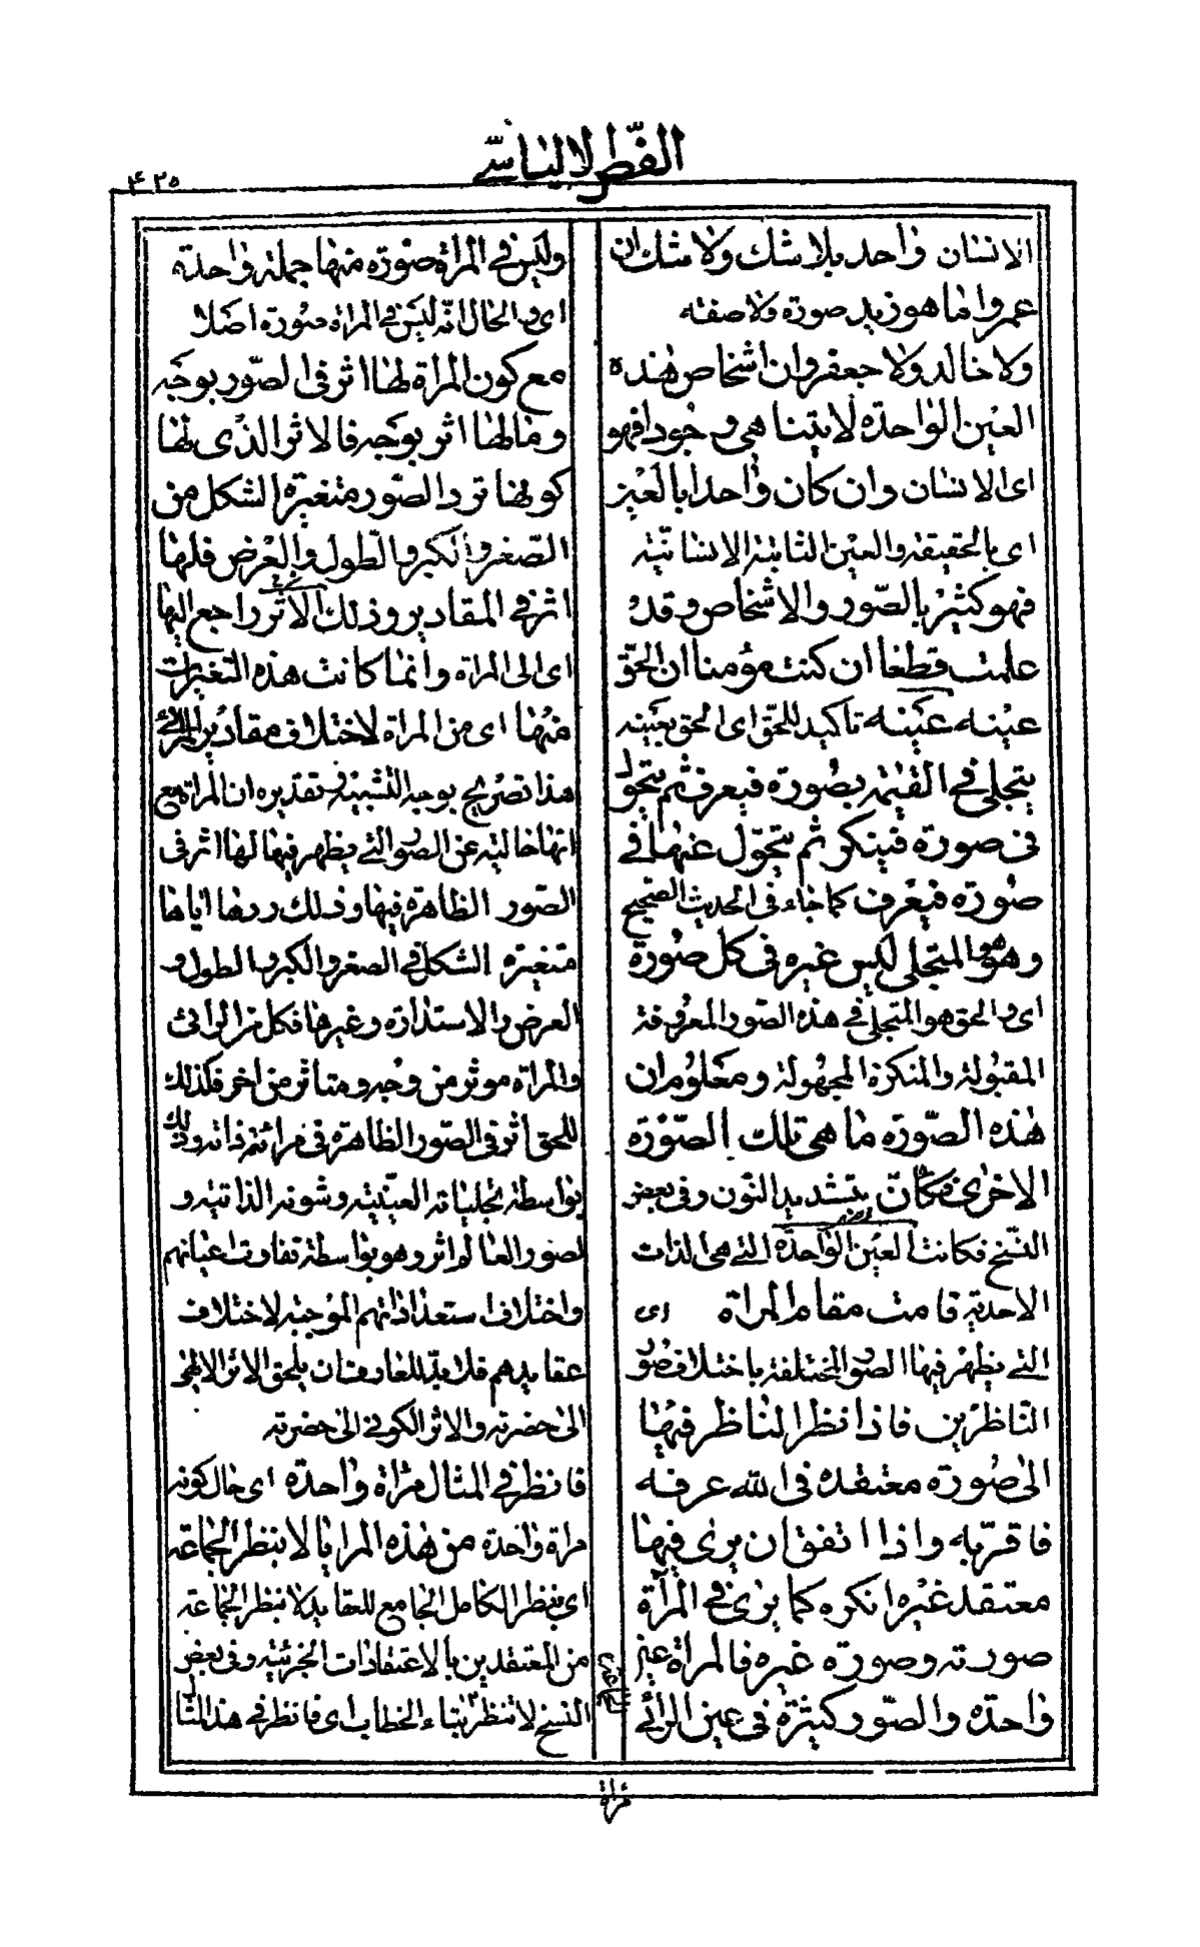 الفصّ الالیاسے
۴۲۵
الانسان واحد بلاشك ولاشك ان
عمروا ما هو زید صورة ولا صفته
ولا خالد ولا جعفر وان اشخاص هذه
العین الواحدة لا یتناهی وجودا فهو
ای الانسان وان کان واحدا بالعین
ای بالحقیقة والعین الثابتة الانسانیّة
فهو کثیر بالصّور والاشخاص وقد
علمت قطعا ان کنت مؤمنا ان الحقّ
عینه عینه تاکید للحقّ ای الحق بعینه
یتجلی فی القیٰمة بصورة فیعرف ثم یتحول
فی صورة فینکر ثم یتحوّل عنها فی
صورة فیعرف کما جاء فی الحدیث الصحیح
وهو هو المتجلی لیس غیره فی کل صورة
ای والحق هو المتجلی فی هذه الصّور المعروفة
المقبولة والمنکرة المجهولة ومعلوم ان
هذه الصّورة ما هی تلك الصّورة
الاخرٰی فکانّ بتشدید النّون وفی بعض
النّسخ فکانت العین الواحدة التے هی الذات
الاحدیة قامت مقام المرآة ای
التے یظهر فیها الصور المختلفة باختلاف صور
النّاظرین فاذا نظر النّاظر فیها
الی صورة معتقده فی الله عرفه
فاقرّ به واذا اتفق ان یری فیها
معتقد غیره انکره کما یری فی المرآة
صورته وصورة غیره فالمراة عین
واحدة والصّور کثیرة فی عین الرائے
ولیس فی المرآة صورة منها جملة واحدة
ای والحال انّه لیس فی المرآة صورة اصلا
مع کون المرآة لها اثر فی الصّور بوجه
وما لها اثر بوجه فالاثر الذّی لها
کونها ترد الصّور متغیّرة الشکل من
الصّغر والکبر والطول والعرض فلها
اثر فی المقادیر وذلك الاثر راجع الیها
ای الی المرآة وانّما کانت هذه التغیرات
منها ای من المرآة لاختلاف مقادیر المرائے
هذا تصریح بوجه التشبیه وتقدیره ان المراة مع
انها خالیة عن الصور التے یظهر فیها لها اثر فی
الصّور الظاهرة فیها وذلك ردها ایاها
متغیّرة الشکل فی الصغر والکبر والطول و
العرض والاستدارة وغیرها فکل من الرائے
والمراة موثر من وجه ومتاثر من اخر فکذلك
للحق اثر فی الصّور الظاهرة فی مرائة ذاته وذلك
بواسطة تجلیاته العینیّة وشونه الذاتیة و
لصور العالم اثر وهو بواسطة تفاوت اعیانهم
واختلاف استعداداتهم الموجبة لاختلاف
عقایدهم فلا بدّ للعارف ان یلحق الاثر الالهی
الی حضرته والاثر الکونی الی حضرته
فانظر فی المثال مرآة واحدة ای حال کونه
مراة واحدة من هذه المرایا لا ینظر الجماعة
ای ینظر الکامل الجامع للعقاید لا ینظر الجماعة
من المعتقدین بالاعتقادات الجزئیة وفی بعض
النسخ لا تنظر بتاء الخطاب ای فانظر فی هذا المثال
مراة